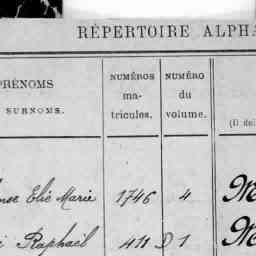 RÉPERTOIRE ALPHA
PRÉNOMS
SURNOMS.
NUMÉROS
ma-
tricules.
NUMÉRO
du
volume.
Elie Marie 1746 4 M
Raphaël 411 D 1 M